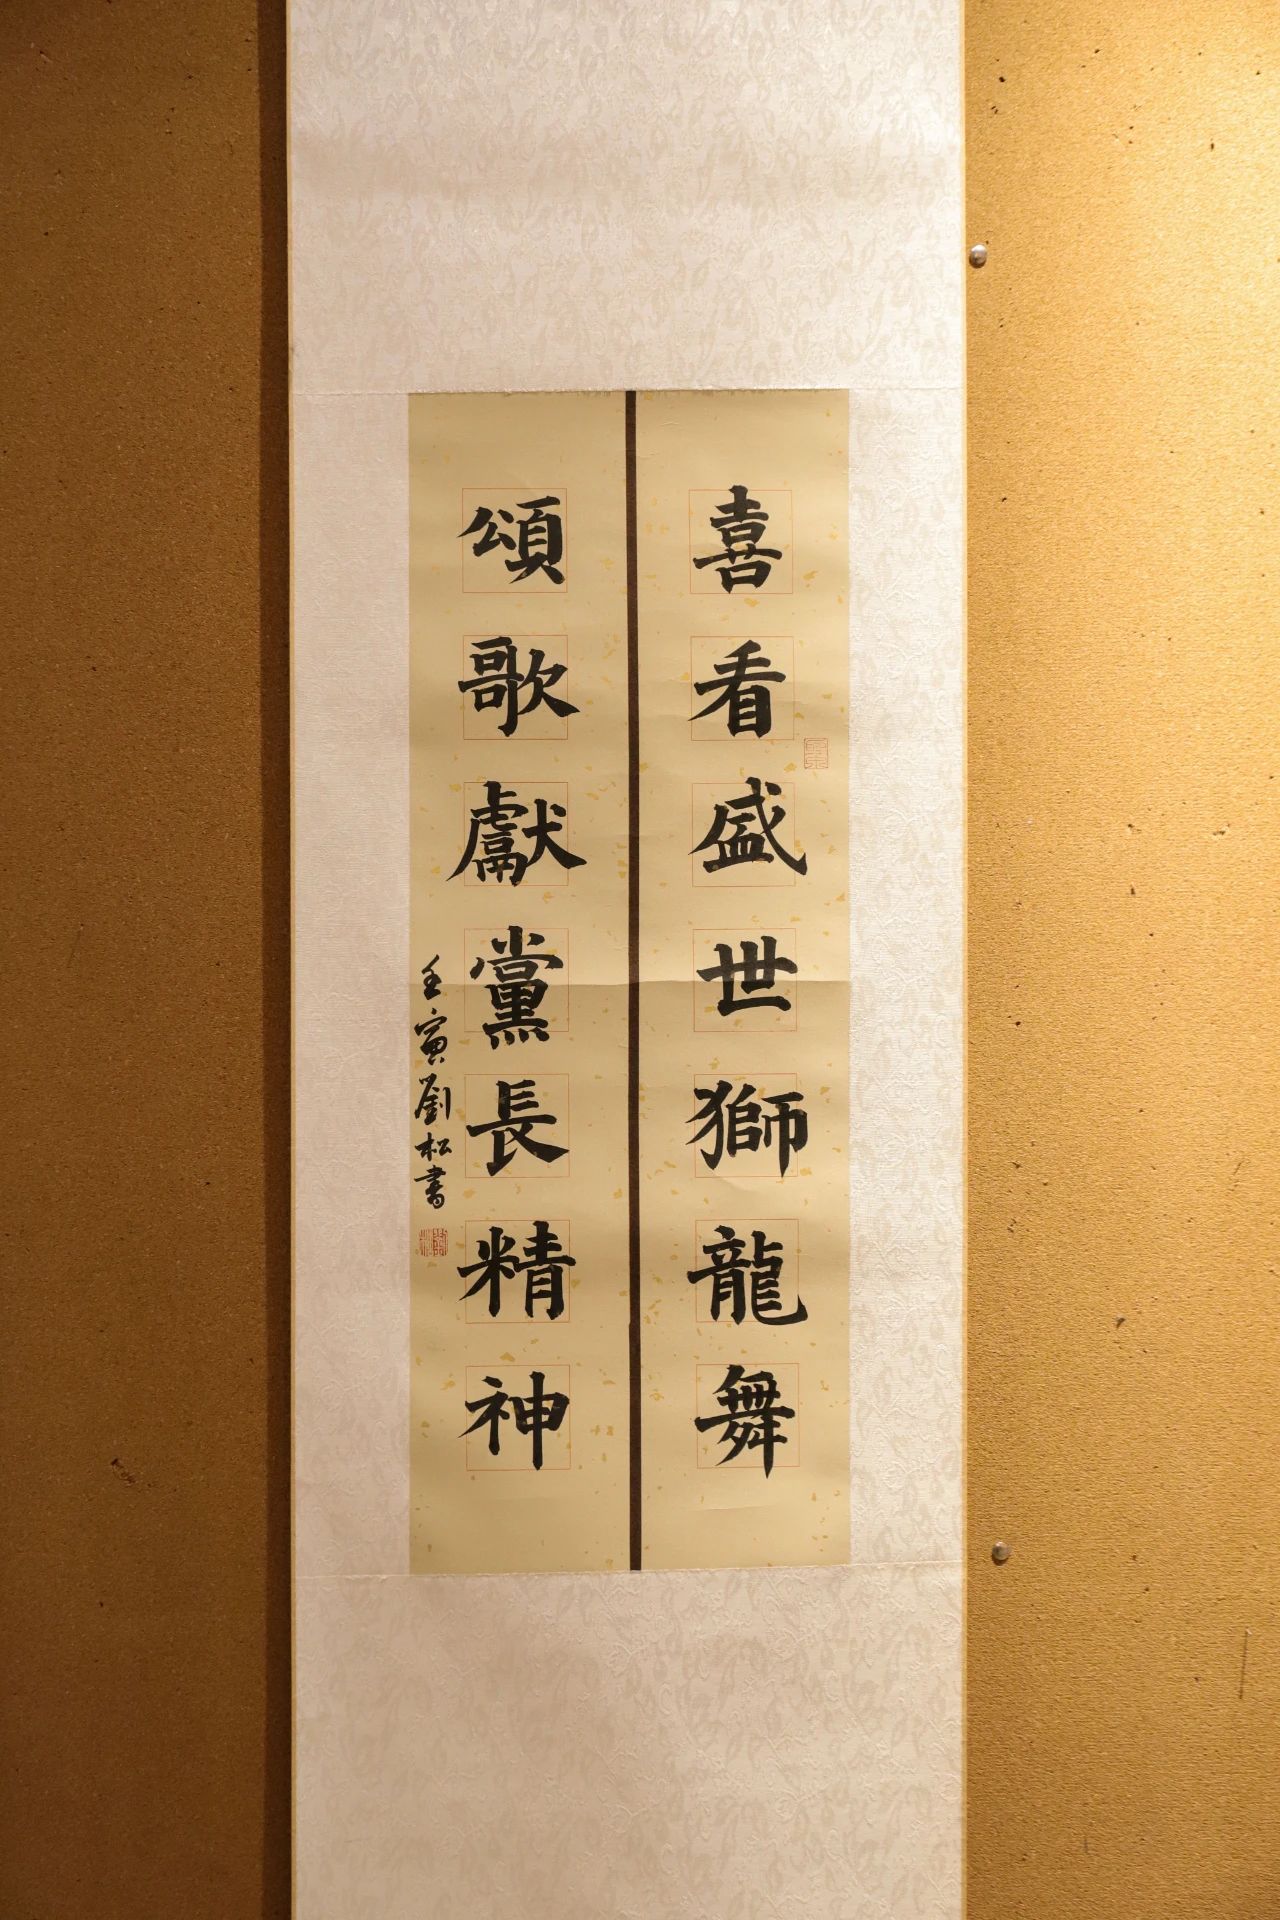 喜看盛世獅龍舞
頌歌獻黨長精神
壬寅劉松書